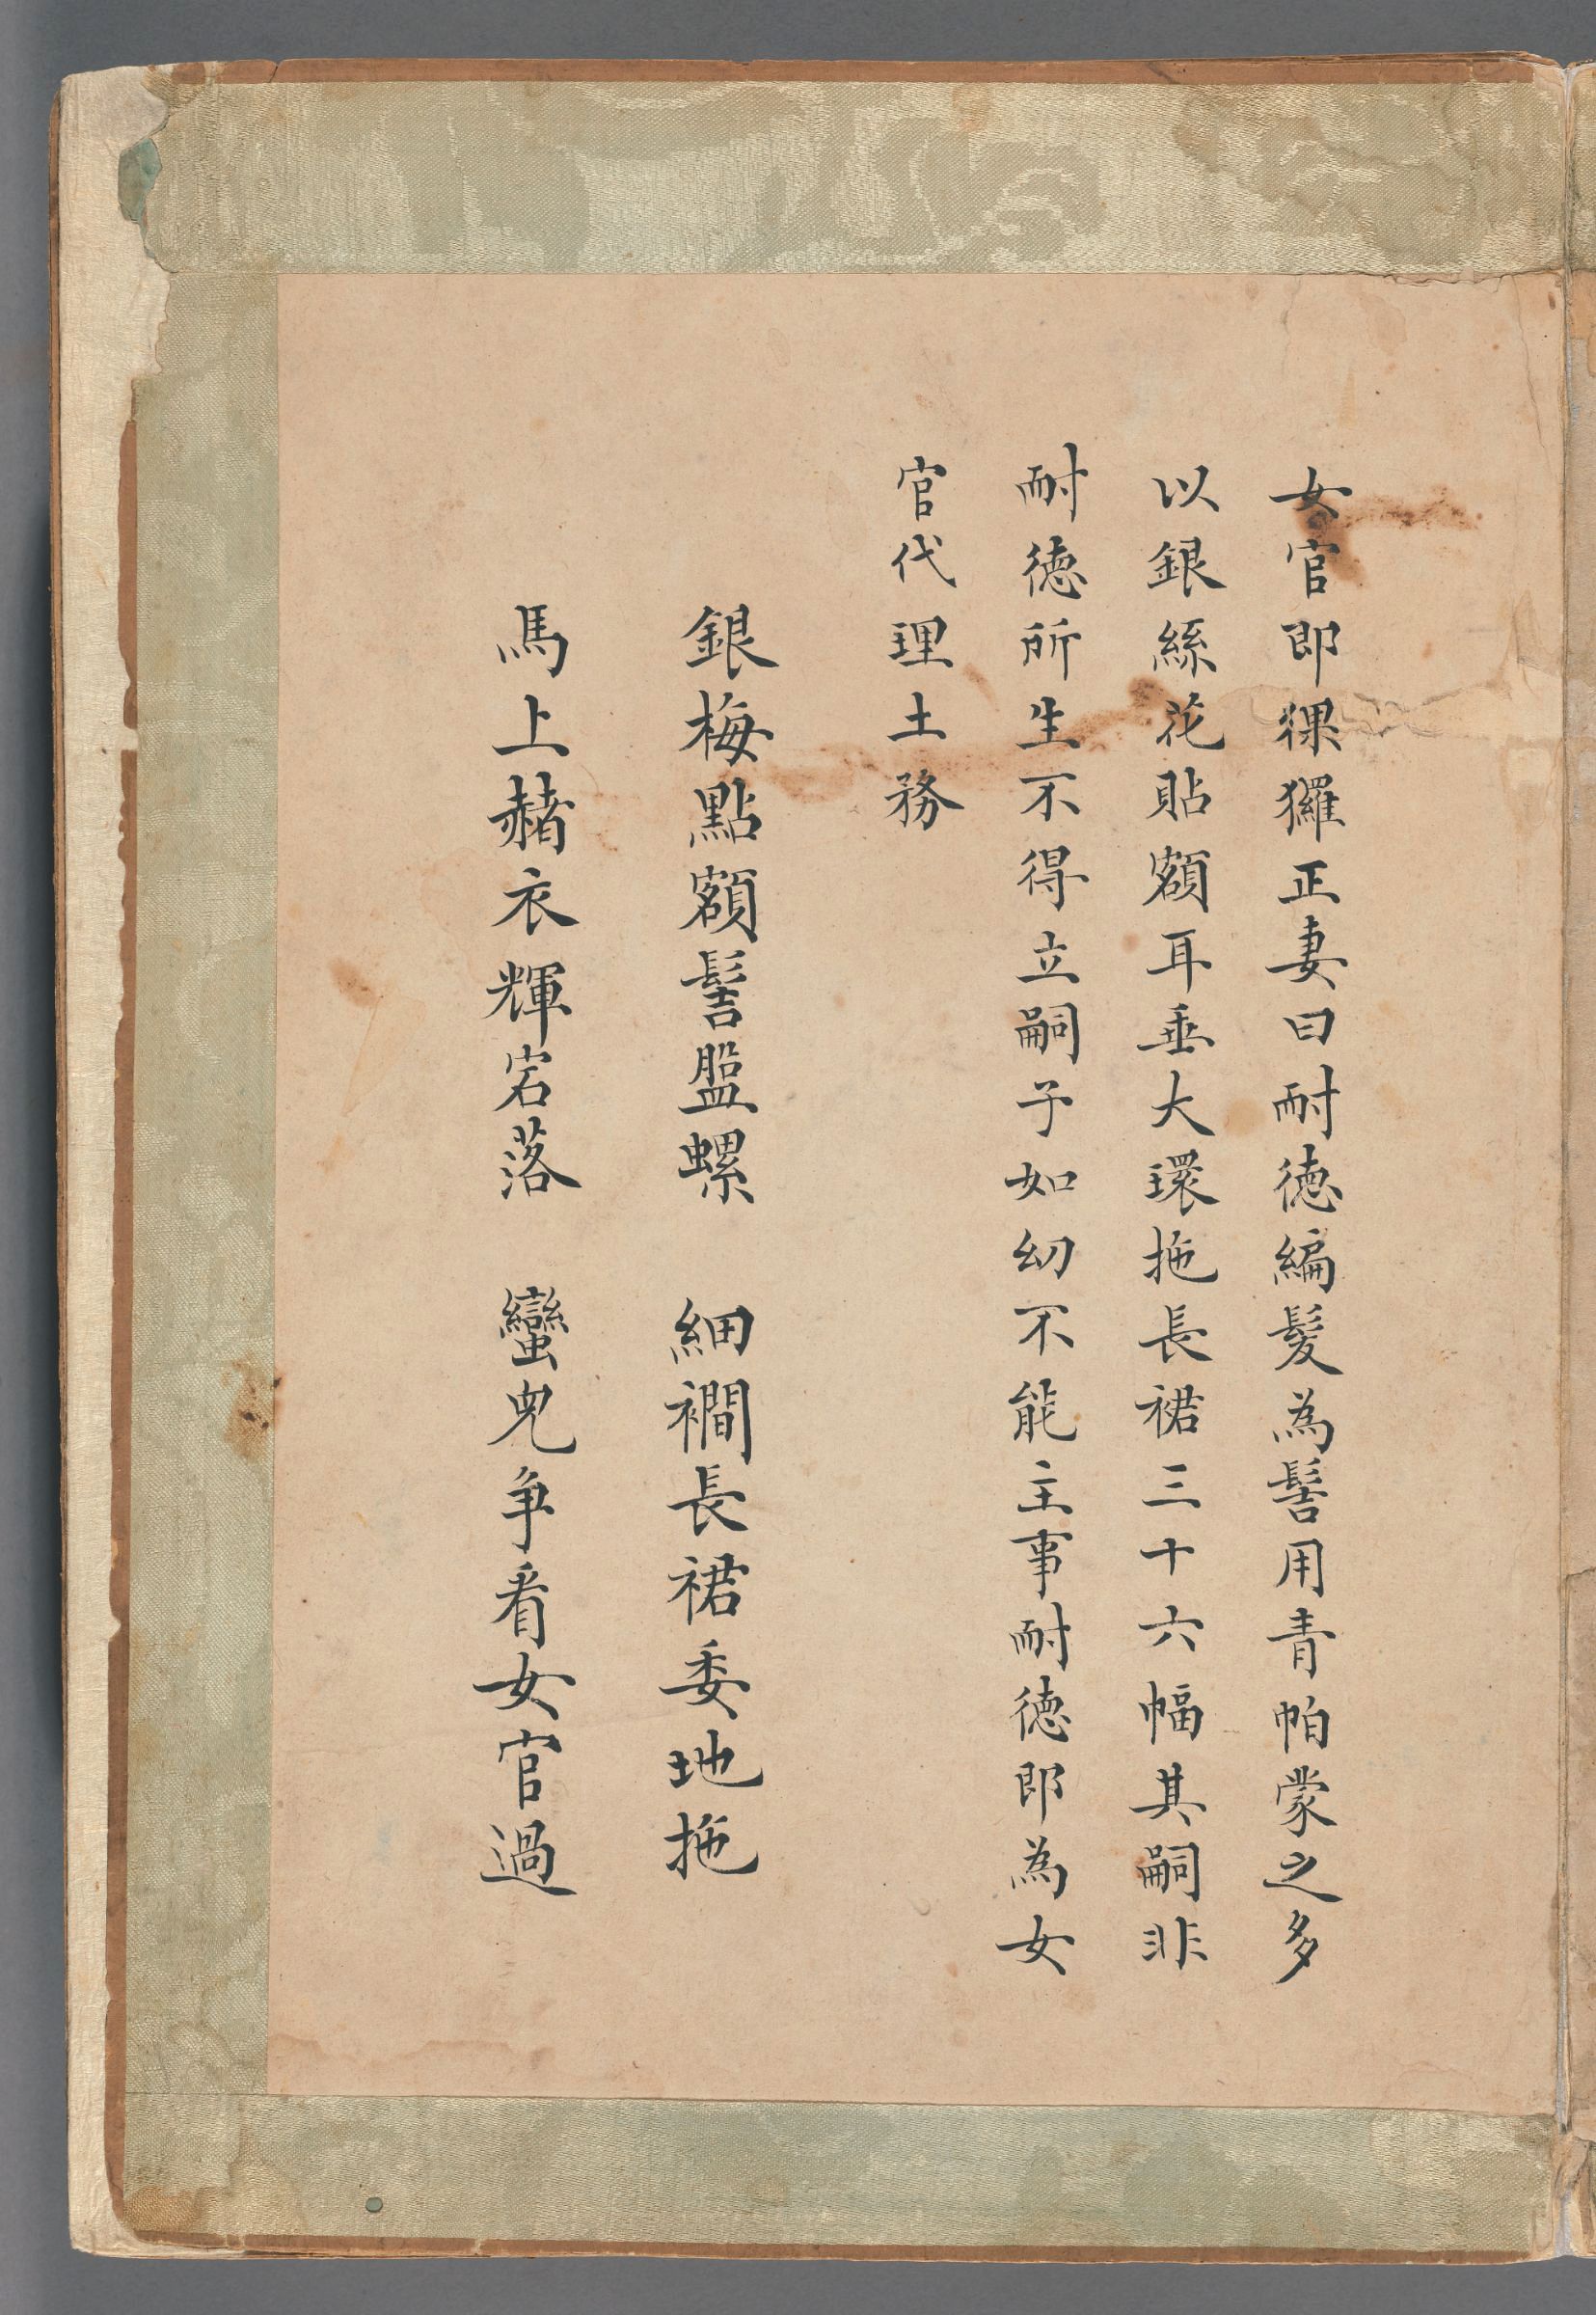 女官即猓玀正妻曰耐德編髮為髻用青帕蒙之多
以銀絲花貼額耳垂大環拖長裙三十六幅其嗣非
耐德所生不得立嗣子如幼不能主事耐德即為女
官代理土務
銀梅點額髻盤螺 細襉長裙委地拖
馬上赭衣輝宕落 蠻兒爭看女官過